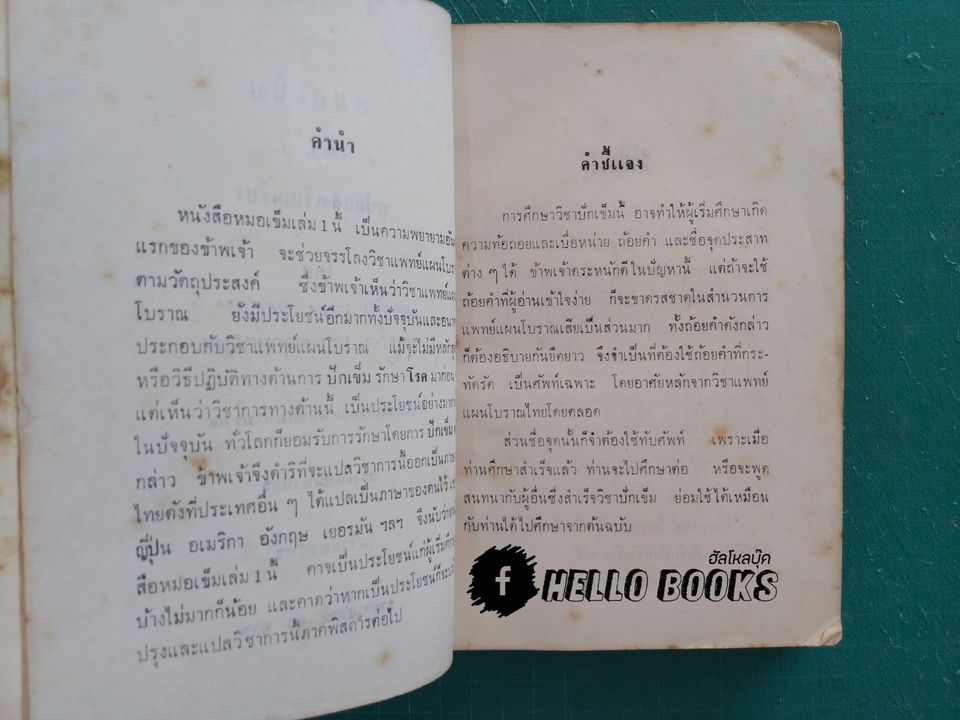 คำนำ
หนังสือหมอเข็มเล่ม 1 นี้ เป็นความพยายามอัน
แรกของข้าพเจ้า จะช่วยจรรโลงวิชาแพทย์แผนโบรา
ตามวัตถุประสงค์ ซึ่งข้าพเจ้าเห็นว่าวิชาแพทย์แผน
โบราณ ยังมีประโยชน์อีกมากทั้งปัจจุบันและอนา
ประกอบกับวิชาแพทย์แผนโบราณ แม้จะไม่มีหลักสู
หรือวิธีปฏิบัติทางด้านการ ปักเข็ม รักษา โรค มาก่อน
แต่เห็นว่าวิชาการทางด้านนี้ เป็นประโยชน์อย่างมาก
ในปัจจุบัน ทั่วโลกก็ยอมรับการรักษาโดยการ ปักเข็ม
กล่าว ข้าพเจ้าจึงดำริที่จะแปลวิชาการนี้ออกเป็นภาษ
ไทยดังที่ประเทศอื่น ๆ ได้แปลเป็นภาษาของตนไว้ เช
ญี่ปุ่น อเมริกา อังกฤษ เยอรมัน ฯลฯ จึงนับว่าหน
สือหมอเข็มเล่ม 1 นี้ คาจเป็นประโยชน์แก่ผู้เริ่มศึก
บ้างไม่มากก็น้อย และคาดว่าหากเป็นประโยชน์ก็จะ
ปรุงและแปลวิชาการนี้ภาคพิสดารต่อไป
คำชี้แจง
การศึกษาวิชาปักเข็มนี้ อาจทำให้ผู้เริ่มศึกษาเกิด
ความท้อถอยและเบื่อหน่าย ถ้อยคำ และชื่อจุดประสาท
ต่าง ๆ ได้ ข้าพเจ้าตระหนักดีในปัญหานี้ แต่ถ้าจะใช้
ถ้อยคำที่ผู้อ่านเข้าใจง่าย ก็จะขาดรสชาดในสำนวนการ
แพทย์แผนโบราณเสียเป็นส่วนมาก ทั้งถ้อยคำดังกล่าว
ก็ต้องอธิบายกันยืดยาว จึงจำเป็นที่ต้องใช้ถ้อยคำที่กระ-
ทัดรัด เป็นศัพท์เฉพาะ โดยอาศัยหลักจากวิชาแพทย์
แผนโบราณไทยโดยตลอด
ส่วนชื่อจุดนั้นก็จำต้องใช้ทับศัพท์ เพราะเมื่อ
ท่านศึกษาสำเร็จแล้ว ท่านจะไปศึกษาต่อ หรือจะพูด
สนทนากับผู้อื่นซึ่งสำเร็จวิชาปักเข็ม ย่อมใช้ได้เหมือน
กับท่านได้ไปศึกษาจากต้นฉบับ
ฮัลโหลบุ๊ค
f HELLO BOOKS